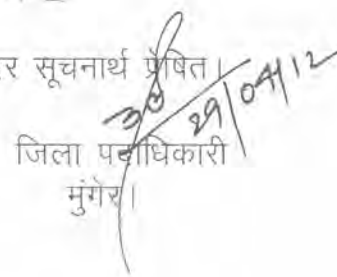 र सूचनार्थ प्रेषित।
29/04/12
जिला पदाधिकारी
मुंगेर।